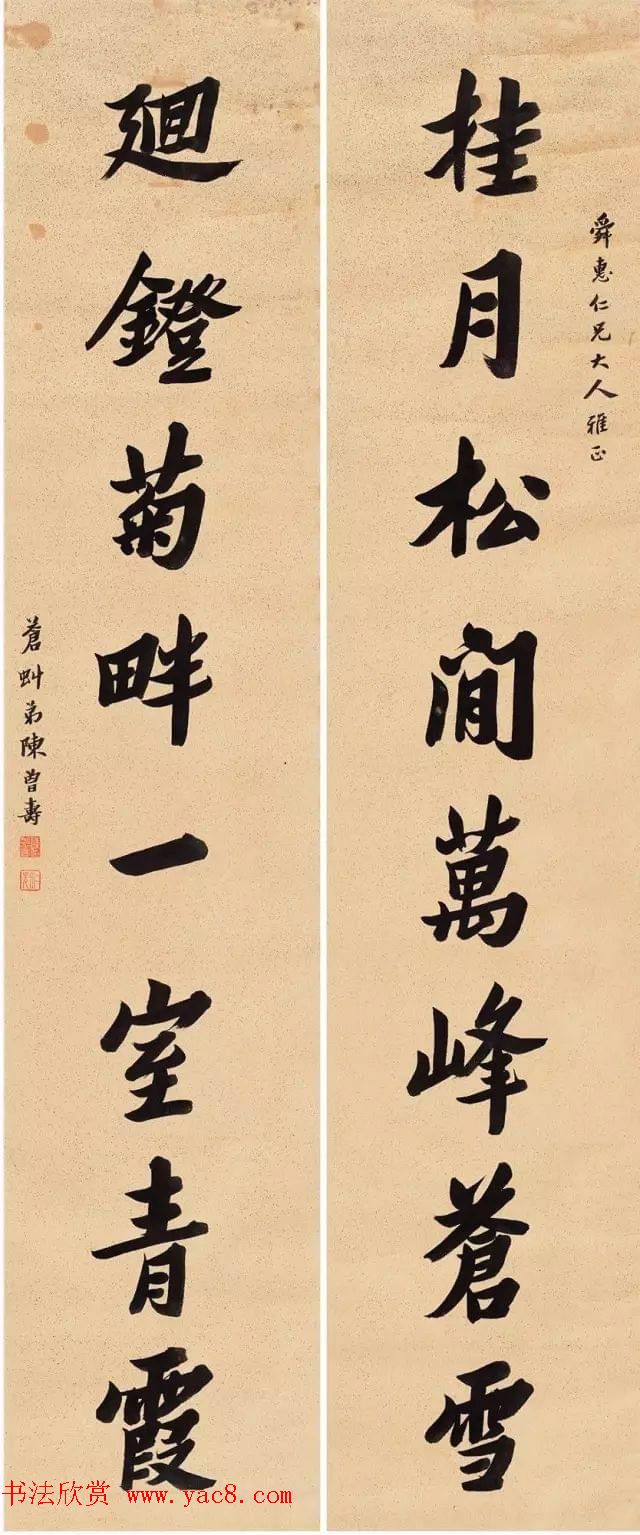 舜惠仁兄大人雅正
挂月松間萬峰蒼雪
廻鐙菊畔一室青霞
蒼虯弟陳曾壽
书法欣赏 www.yac8.com